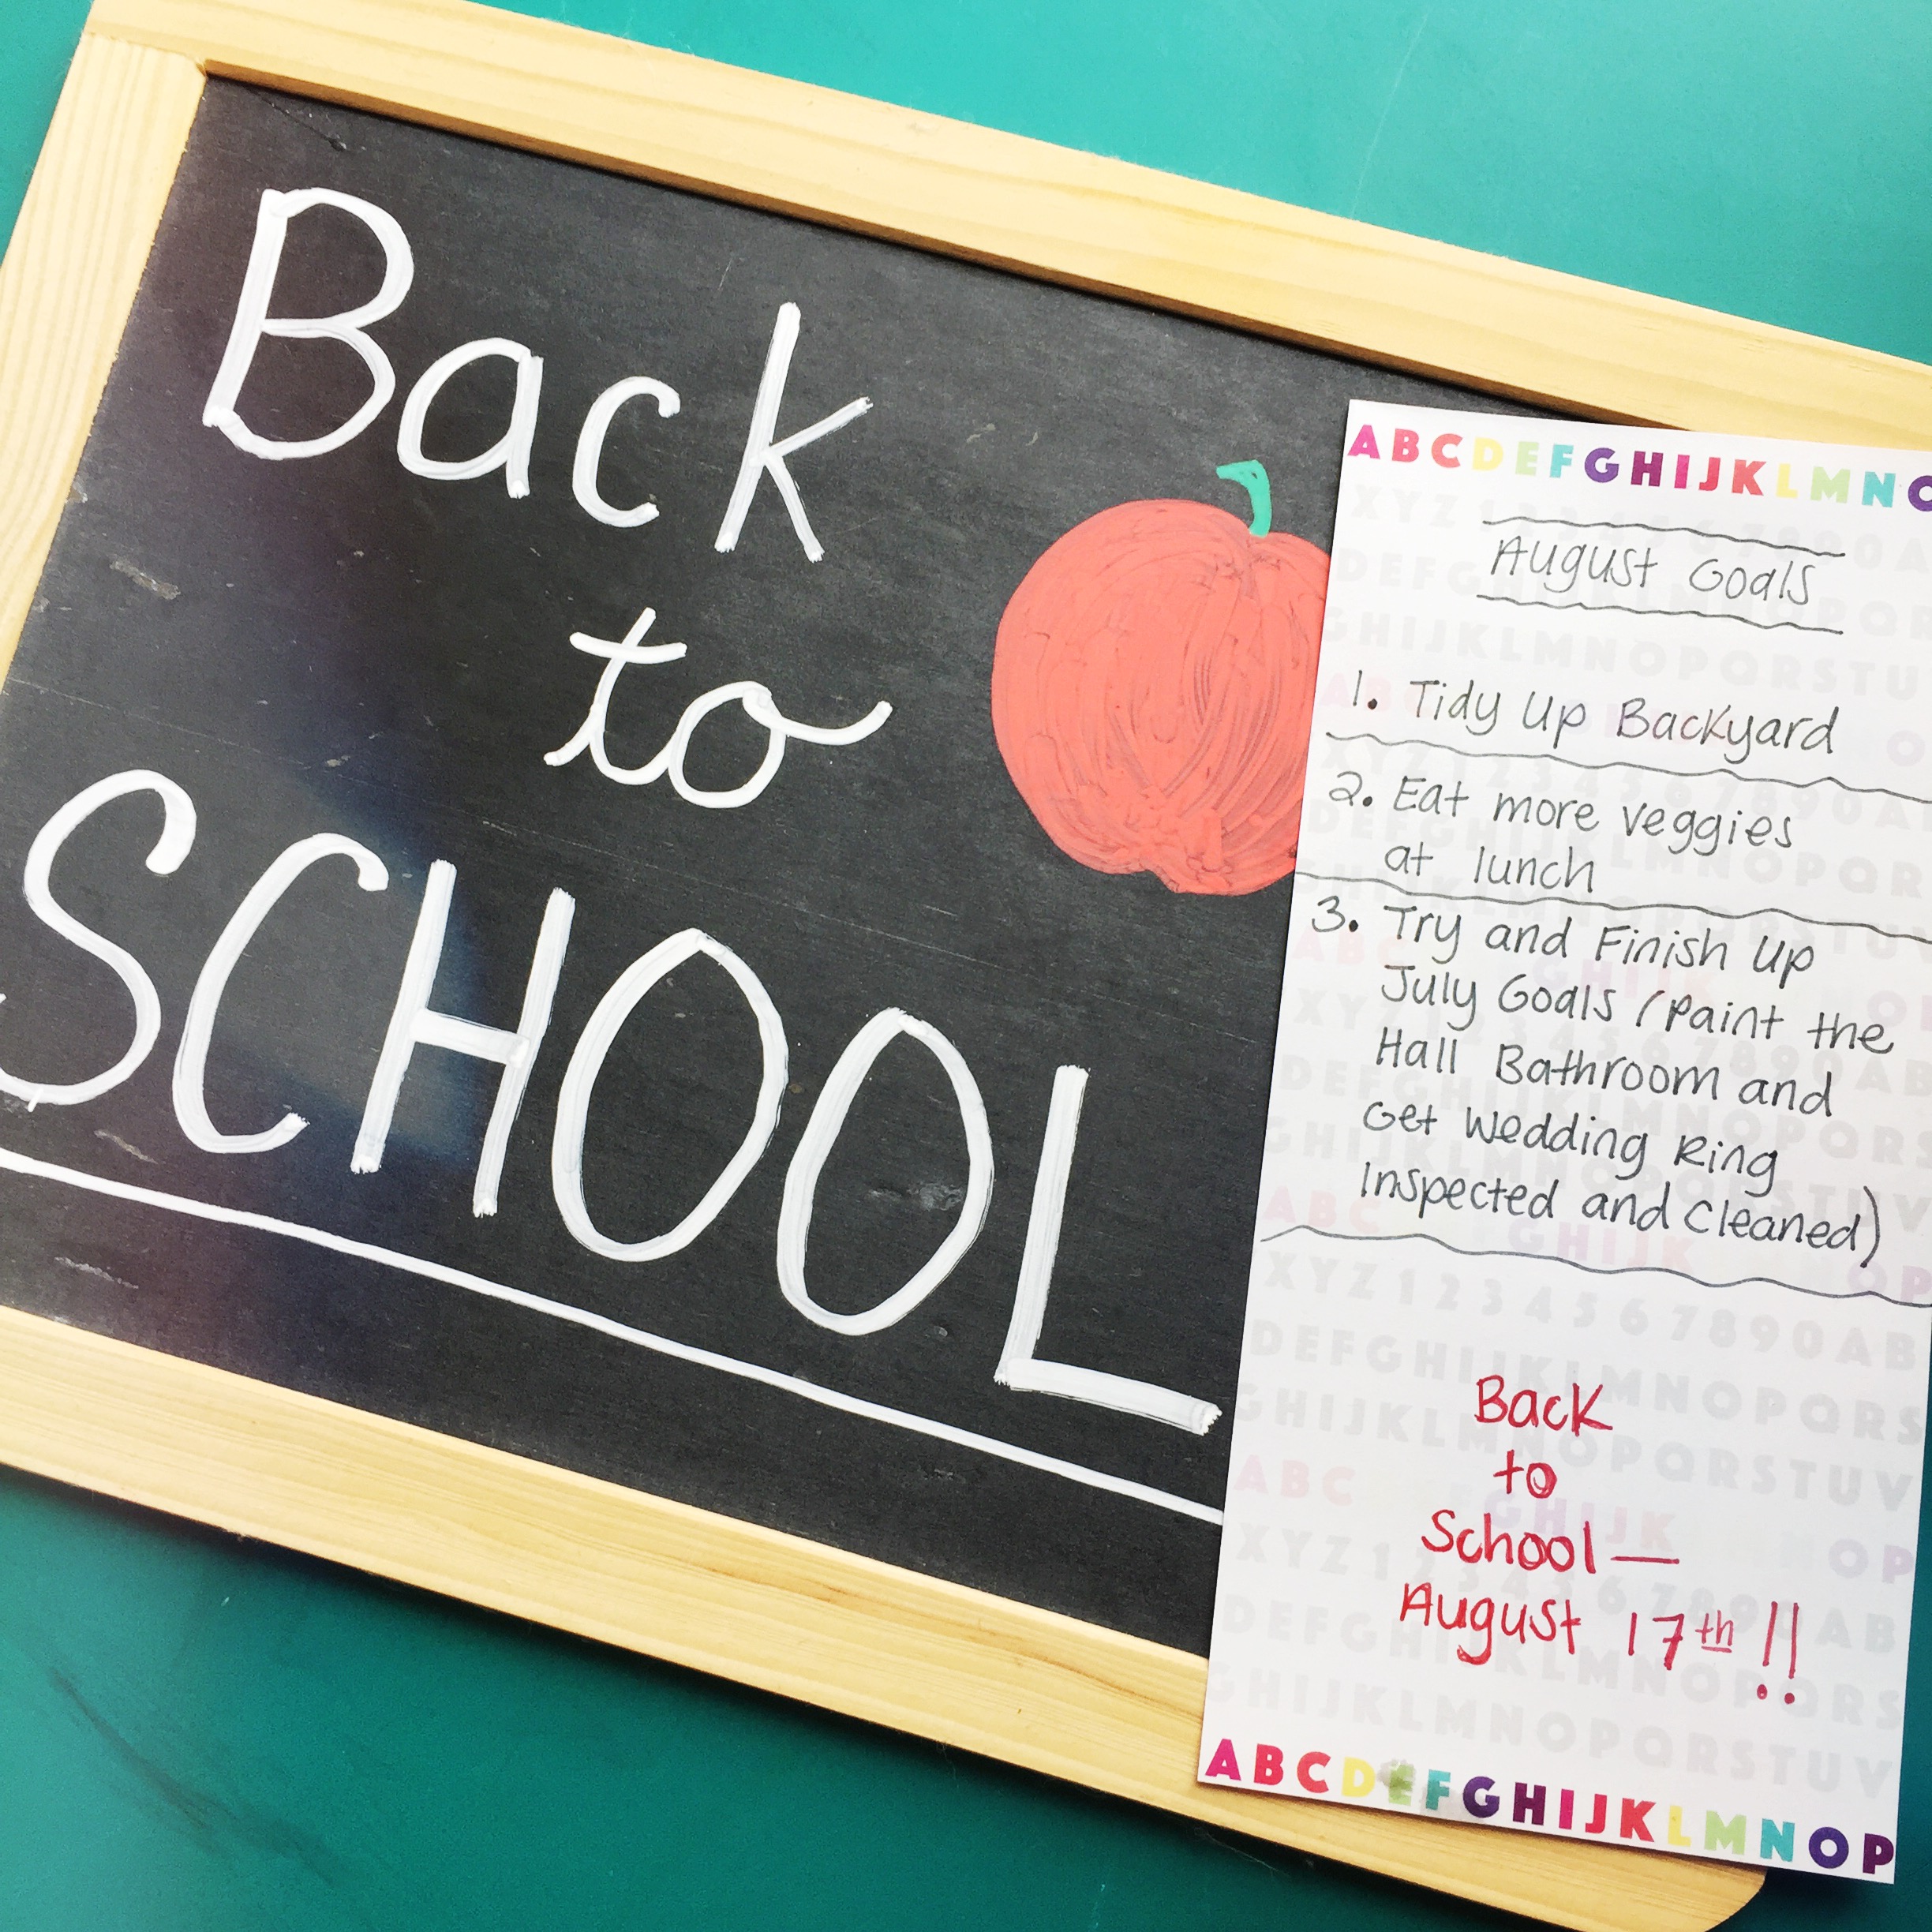 Back
to
SCHOOL
ABCDEFGHIJKLMNO
August Goals
1. Tidy Up Backyard
2. Eat more veggies
at lunch
3. Try and Finish Up
July Goals (Paint the
Hall Bathroom and
Get Wedding Ring
Inspected and Cleaned)
Back
to
School—
August 17th!!
ABCDEFGHIJKLMNOP